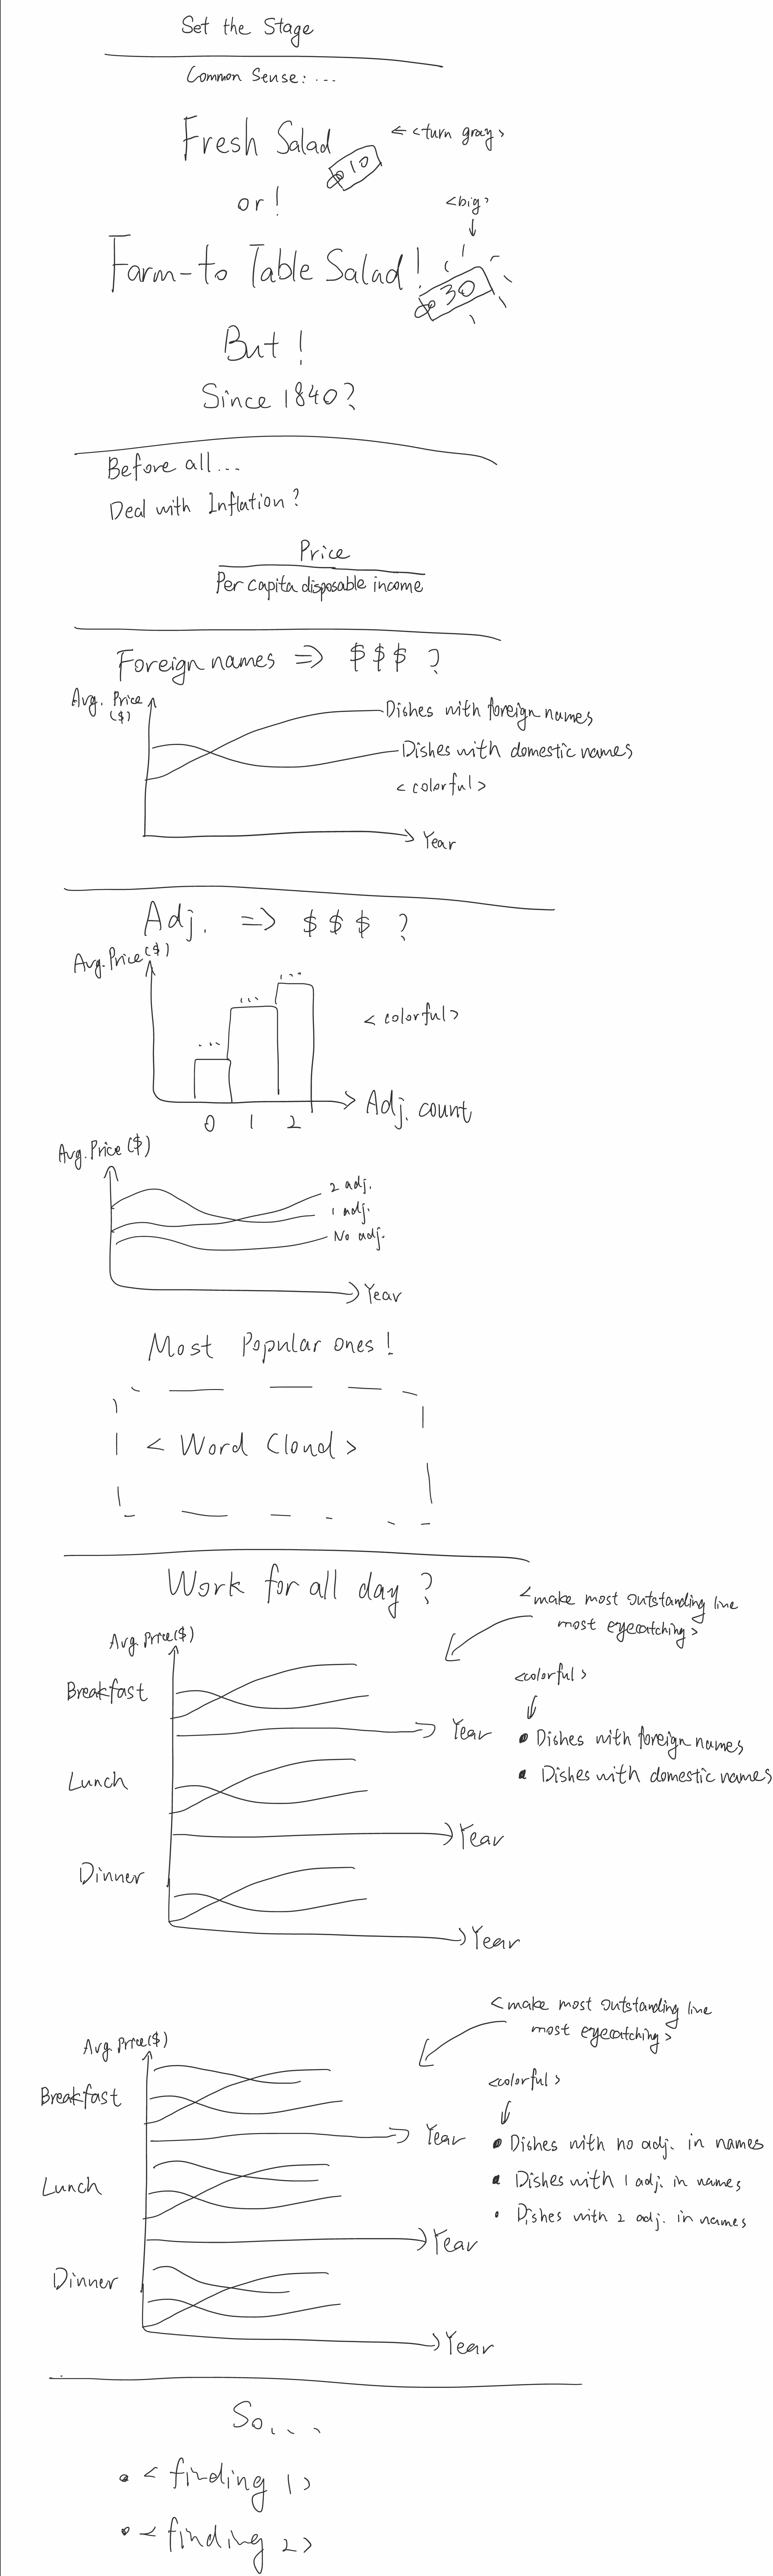 Set the Stage
Common Sense: ...
Fresh Salad
$10
<turn gray>
or!
<big>
Farm-to Table Salad!
$30
But!
Since 1840?
Before all...
Deal with Inflation?
Price
Per capita disposable income
Foreign names => $$$ ?
Avg. Price
($)
Dishes with foreign names
Dishes with domestic names
<colorful>
Year
Adj. => $ $ $ ?
Avg. Price($)
...
...
...
<colorful>
0 1 2
Adj. count
Avg. Price($)
2 adj.
1 adj.
No adj.
Year
Most Popular ones!
<Word Cloud>
Work for all day?
<make most outstanding line
most eyecatching>
Avg. Price($)
<colorful>
Breakfast
Year
• Dishes with foreign names
• Dishes with domestic names
Lunch
Year
Dinner
Year
<make most outstanding line
most eyecatching>
Avg. Price($)
<colorful>
Breakfast
Year
• Dishes with no adj. in names
• Dishes with 1 adj. in names
• Dishes with 2 adj. in names
Lunch
Year
Dinner
Year
So....
• <finding 1>
• <finding 2>